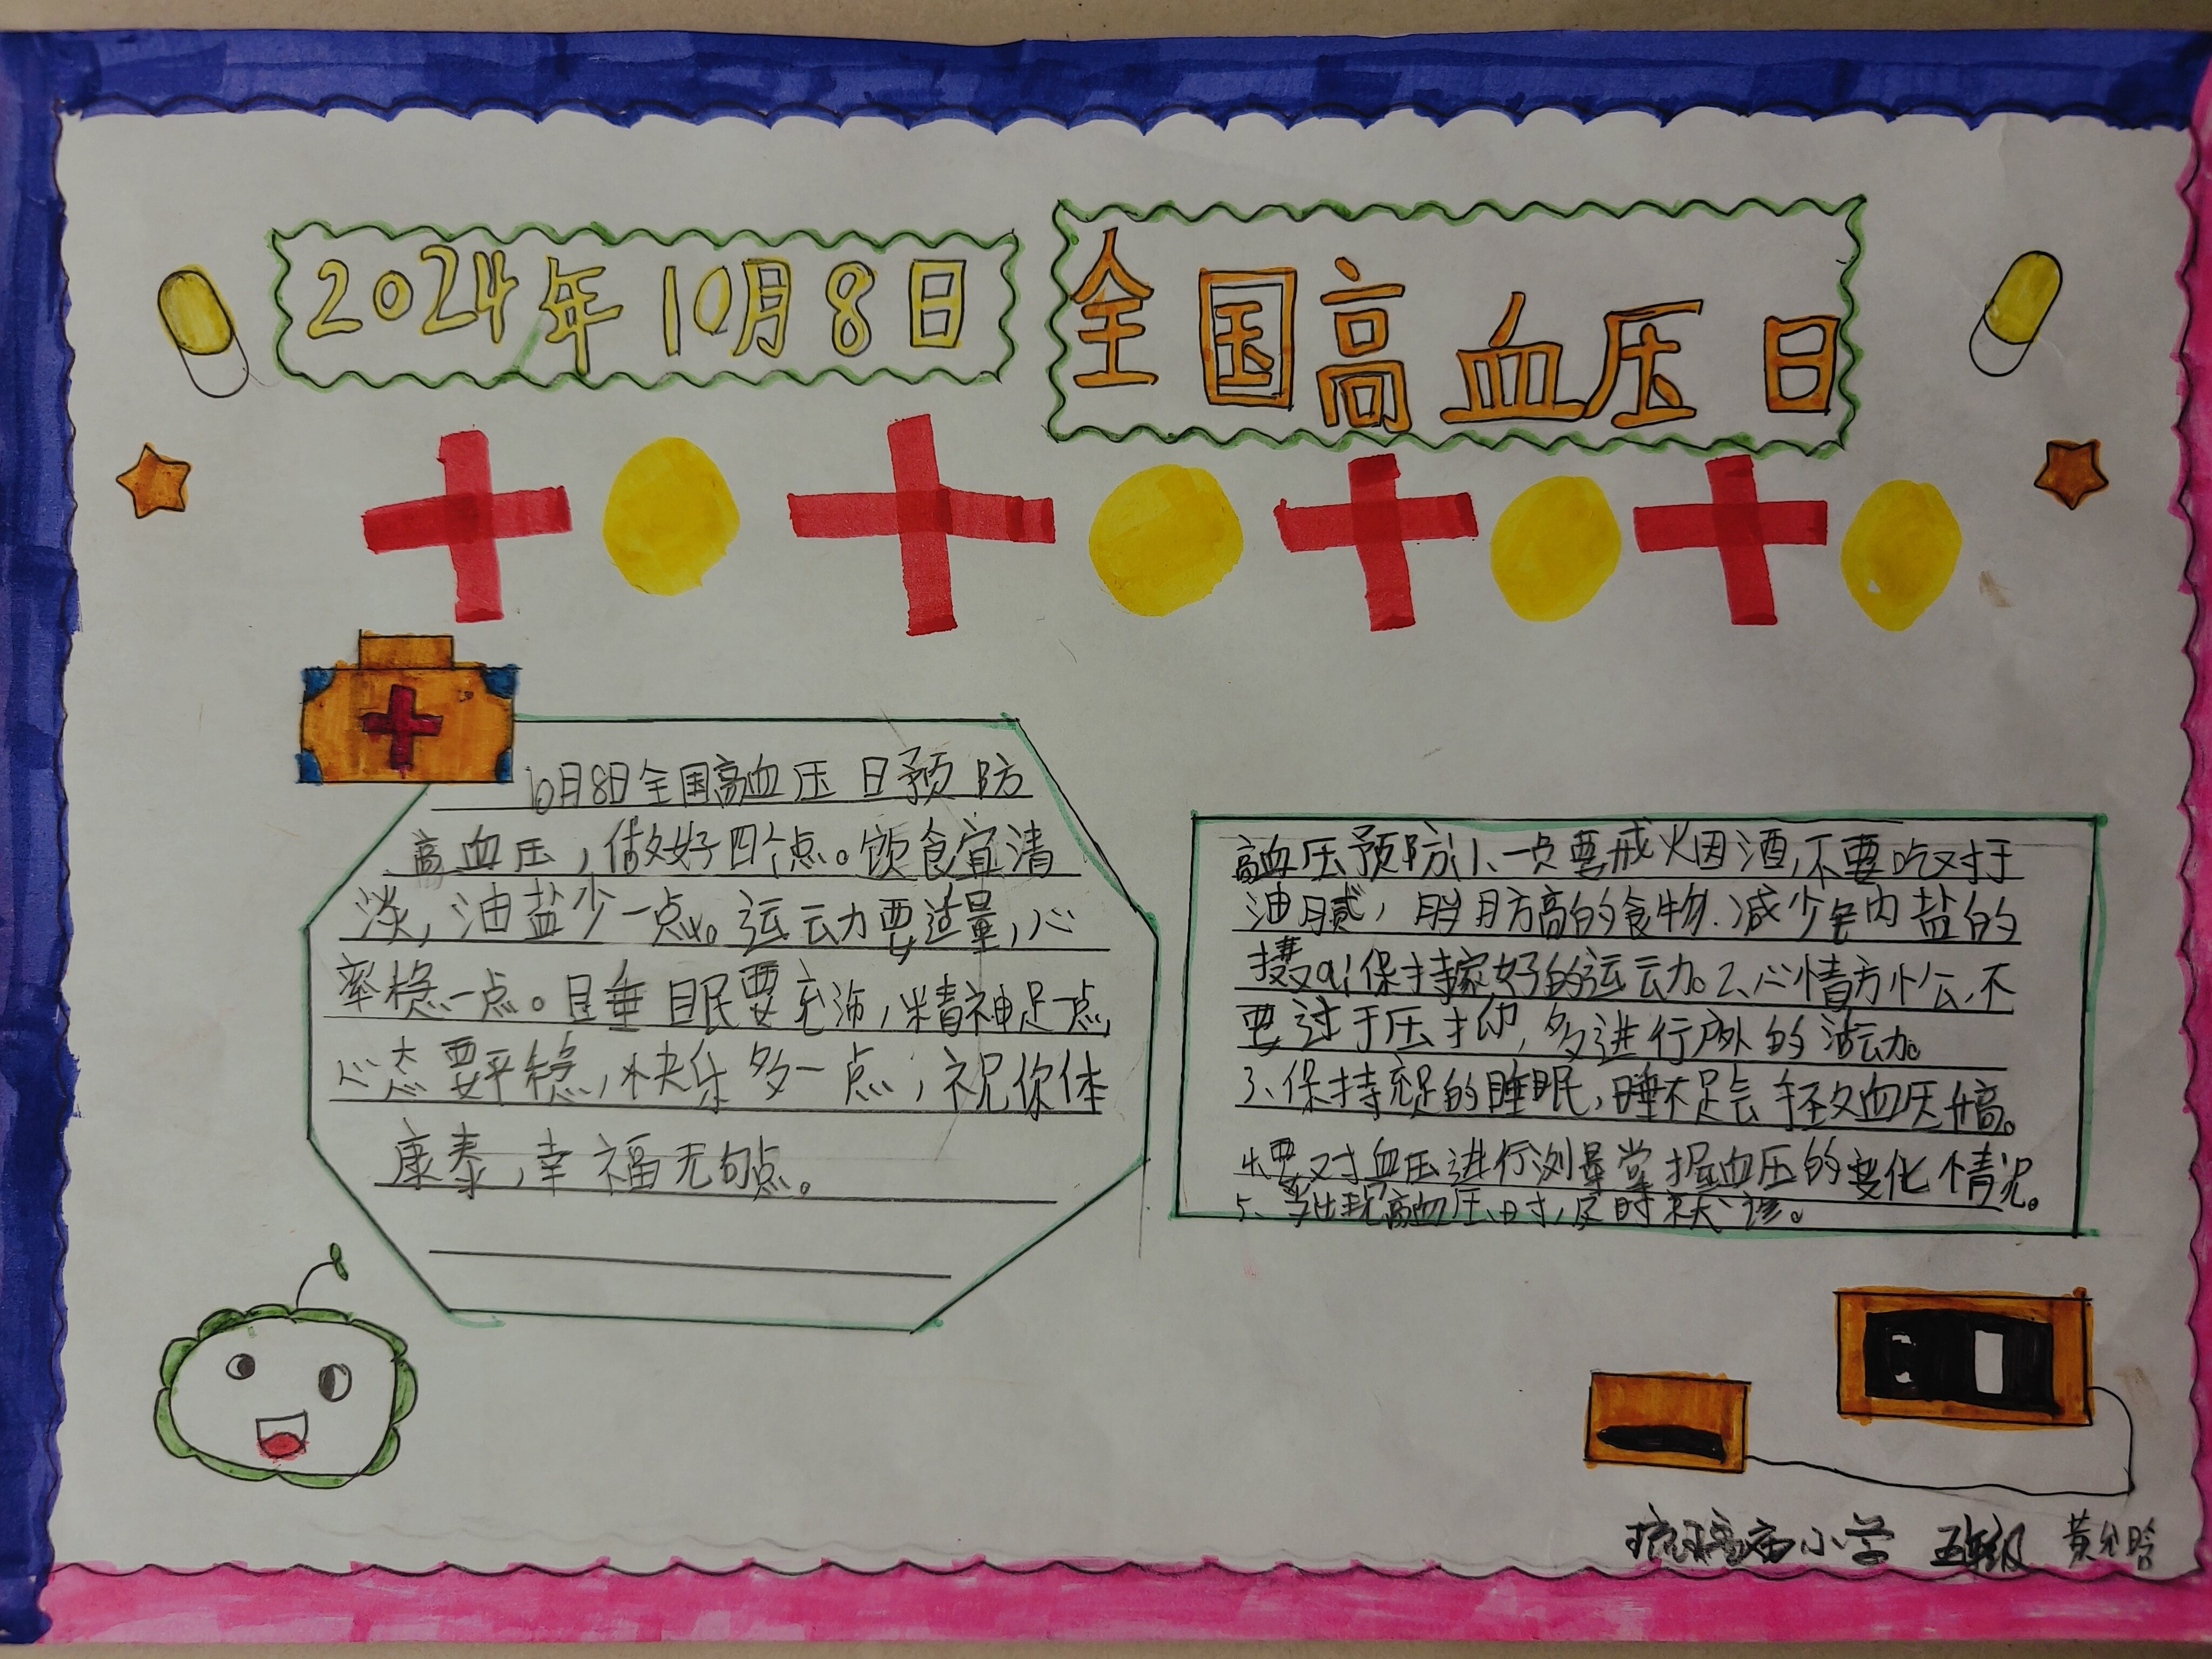 2024年10月8日
全国高血压日
10月8日全国高血压日预防
高血压，做好四个点。饮食宜清
淡，油盐少一点。运动要适量，心
率稳一点。睡眠要充沛，精神足一点，
心态要平稳，快乐多一点，祝你体
康泰，幸福无句点。
高血压预防1、一点要戒火因酒，不要吃对于
油腻，脂肪高的食物.减少钠盐的
摄入保持良好的运动。2、心情方忪，不
要过于压抑，多进行户外的活动。
3、保持充足的睡眠，睡不足会导致血压升高。
4.要对血压进行测量掌握血压的变化情况。
5、当出现高血压时，及时来就诊。
小学 五年级 黄